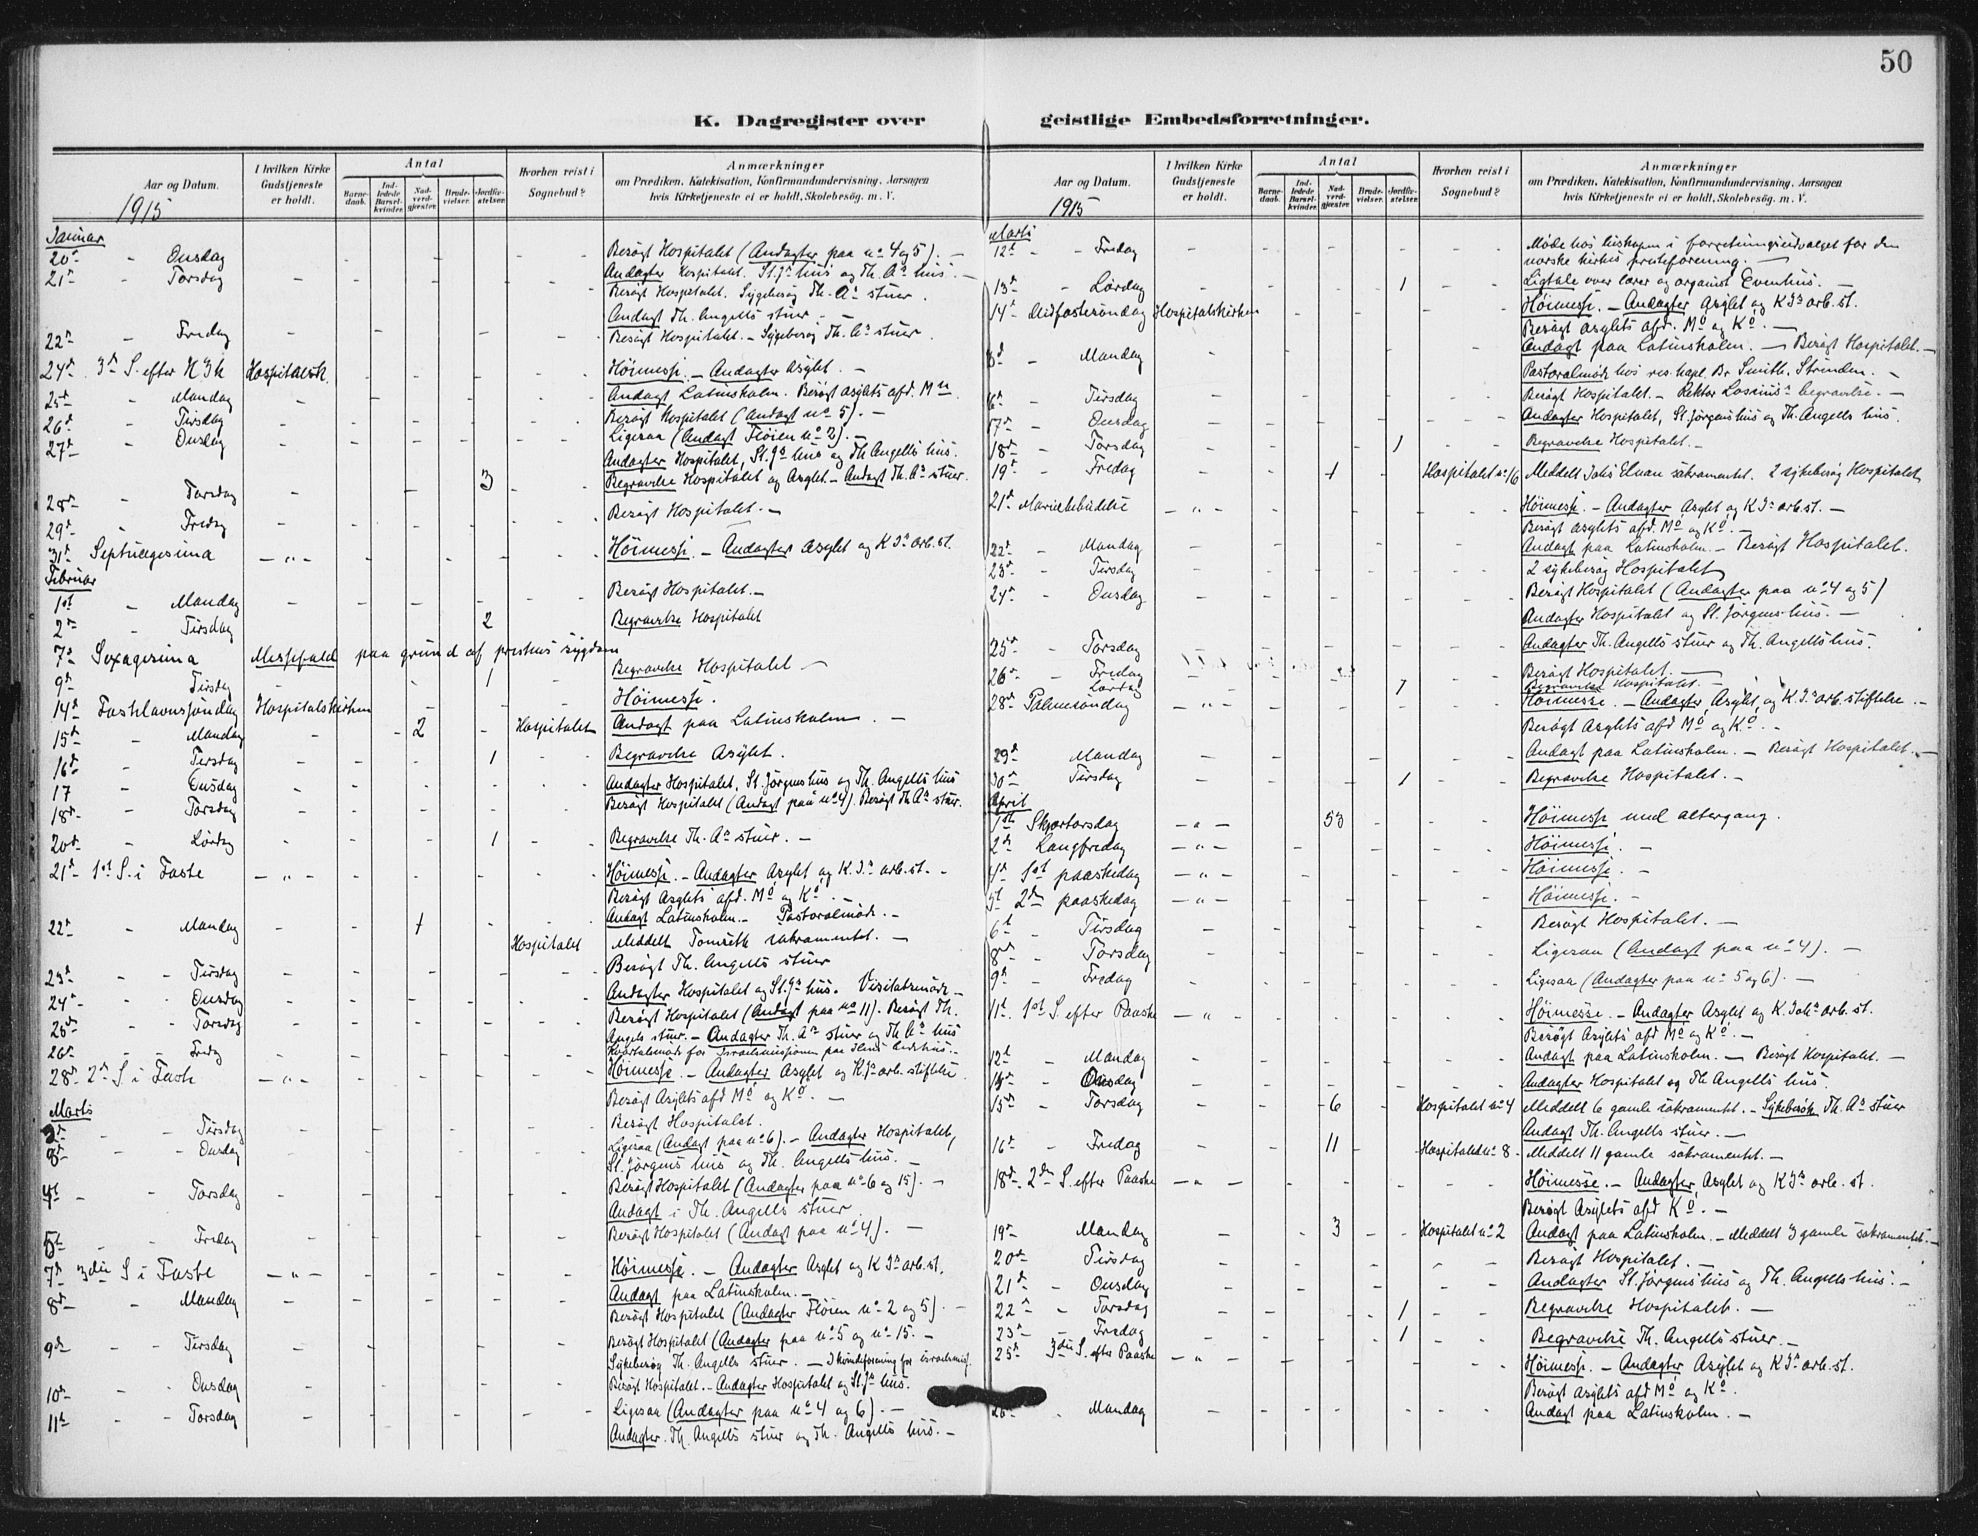 50
K. Dagregister over geistlige Embedsforretninger.
Aar og Datum.
I hvilken Kirke Gudstjeneste er holdt.
Antal
Barnedaab.
Indledede Barselkvinder.
Nadverdgjester.
Brudevielser.
Jordfæstelser.
Hvorhen reist i Sognebud?
Anmærkninger
om Prædiken, Katekisation, Konfirmandundervisning, Aarsagen
hvis Kirketjeneste ei er holdt, Skolebesøg. m. V.
1915
Januar
20de - Onsdag Besøgt Hospitalet (Andagter paa no 4 og 5). -
21de - Torsdag Andagter Hospitalet. St. Js hus og Th. As hus. -
Besøgt Hospitalet. Sygebesøg Th. As stuer.
Andagt Th. Angells stuer -
22de - Fredag Besøgt Hospitalet. - Sygebesøg Th. As stuer.
24de 3de S. efter H3k Hospitalsk. Høimesse. - Andagter Asylet. -
25de - Mandag Andagt Latinskolen. Besøgt Asylets afd. M
26de - Tirsdag Besøgt Hospitalet (Andagt no 5). -
27de - Onsdag Ligesaa (Andagt Fløien no 2). -
Andagter Hospitalet, St. Js hus og Th. Angells hus.
3 Begravelse Hospitalet og Asylet. - Andagt Th. As stuer.
28de - Torsdag Besøgt Hospitalet. -
29de - Fredag
31te Septuagesima - " - Høimesse - Andagter Asylet og K Js arb. st.
Februar
1ste - Mandag Besøgt Hospitalet. -
2den - Tirsdag 2 Begravelse Hospitalet
7de Sexagesima Messefald paa grund af prestens sygdom
9de - Tirsdag 1 Begravelse Hospitalet -
14de Fastelavnssøndag Hospitalskirken Høimesse.
15de - Mandag 2 Hospitalet Andagt paa Latinskolen. -
16de - Tirsdag 1 Begravelse Asylet.
17 - Onsdag Andagter Hospitalet, St. Jørgens hus og Th. Angells hus
18de - Torsdag Besøgt Hospitalet (Andagt paa no 4). Besøgt Th As stuer.
20de - Lørdag 1 Begravelse Th. As stuer. -
21de 1ste S. i Faste - " - Høimesse. - Andagter Asylet og K. Js arb. st. -
Besøgt Asylets afd. Mo og Ko. -
22de - Mandag 1 Andagt Latinskolen. - Pastoralmøde. -
Hospitalet Meddelt Tomseth sakramentet. -
23de - Tirsdag Besøgt Th. Angells stuer
24de - Onsdag Andagter Hospitalet og St. Js hus. Visitatsmøde -
25de - Torsdag Besøgt Hospitalet (Andagt paa no 11). Besøgt Th.
Angels stuer. - Andagter Th. As stuer og Th. As hus
26de - Fredag Kvartalsmøde for Israelsmissionen paa
28de 2den S. i Faste - " - Høimesse. - Andagter Asylet og K. Js arb. stiftelse.
Besøgt Asylets afd Mo og Ko. -
Marts
2den - Tirsdag Besøgt Hospitalet.
3de - Onsdag Ligesaa (Andagt paa no 6). - Andagter Hospitalet,
St. Jørgens hus og Th. Angells hus. -
4de - Torsdag Besøgt Hospitalet (Andagter paa no 6 og 15). -
Andagt i Th. Angells stuer.
5te - Fredag Besøgt Hospitalet (Andagt paa no 4). -
7de 3die S i Faste - " - Høimesse. - Andagter Asylet og K Js arb. st.
8de - Mandag Andagt paa Latinskolen. -
Besøgt Hospitalet (Andagter Fløien no 2 og 5). -
9de - Tirsdag Besøgt Hospitalet (Andagter paa no 5 og no 15. -
Sykebesøg Th. Angells stuer. - I kvindeforening for israelsmis.
10de - Onsdag Besøgt Hospitalet. - Andagter Hospitalet og St. Js hus.
11te - Torsdag Ligesaa (Andagter paa no 4 og 6). -
Andagter. Th. Angells stuer og Th. Angells hus. -
Aar og Datum.
I hvilken Kirke Gudstjeneste er holdt.
Antal
Barnedaab.
Indledede Barselkvinder.
Nadverdgjester.
Brudevielser.
Jordfæstelser.
Hvorhen reist i Sognebud?
Anmærkninger
om Prædiken, Katekisation, Konfirmandundervisning, Aarsagen
hvis Kirketjeneste ei er holdt, Skolebesøg. m. V.
1915
Marts
12te - Fredag Møde hos biskopen i forretningsudvalget for den
norske kirkes presteforening. -
13de - Lørdag 1 Ligtale over lærer og organist Evenhus. -
14de Midfastesøndag Hospitalskirken Høimesse. - Andagter Asylet og K Js arb. st.
Besøgt Asylets afd. Mo og Ko. -
Mandag Andagt paa Latinskolen. - Besøgt Hospitalet. -
Pastoralmøde hos res. kapl. Br Smith, Strinden. -
Tirsdag Besøgt Hospitalet. - Rektor begravelse. -
17de - Onsdag Andagter Hospitalet, St. Jørgens hus og Th. Angells hus.
18de - Torsdag 1 Begravelse Hospitalet. -
19de - Fredag 1 Hospitalet no 16 Meddelt sakramentet. 2 sykebesøg Hospitalet
21de Mariæ bebudelse - " - Høimesse. - Andagter Asylet og K Js arb. st. -
Besøgt asylets afd. Mo og Ko. -
22de - Mandag Andagt paa Latinskolen. - Besøgt Hospitalet.
23de - Tirsdag 2 sykebesøg Hospitalet
24de - Onsdag Besøgt Hospitalet (Andagter paa no 4 og 5)
Andagter Hospitalet og St. Jørgens hus. -
25de - Torsdag Andagter Th. Angells stuer og Th. Angells hus.
26de - Fredag Besøgt Hospitalet. -
Lørdag 1 Begravelse Hospitalet. -
28de Palmesøndag - " - Høimesse. - Andagter Asylet og K. Js arb. stiftelse. -
Besøgt Asylets afd Mo og Ko. -
29de Mandag Andagt paa Latinskolen. - Besøgt Hospitalet. -
30de Tirsdag 1 Begravelse Hospitalet. -
April
1ste Skjærtorsdag - " - 53 Høimesse med altergang.
2den Langfredag - " - Høimesse. -
4de 1ste paaskedag - " - Høimesse. -
5te 2den paaskedag - " - Høimesse. -
6te - Tirsdag Besøgt Hospitalet. -
8de - Torsdag Ligesaa (Andagt paa no 4). -
9de - Fredag Ligesaa (Andagter paa no 5 og 6). -
11te 1ste S. efter Paaske - " - Høimesse. - Andagter Asylet og K. Joh. arb. st.
Besøgt Asylets afd Mo og Ko. -
12te - Mandag Andagt paa Latinskolen. - Besøgt Hospitalet. -
14de - Onsdag Andagter Hospitalet og Th Angells hus.
15de - Torsdag 6 Hospitalet no 4 Meddelt 6 gamle sakramentet. - Sykebesøk Th. As stuer
Andagt Th. Angells stuer. -
16de - Fredag 11 Hospitalet no 8 Meddelt 11 gamle sakramentet. -
18de 2den S. efter Paaske - " - Høimesse. - Andagter Asylet og K Js arb. st.
Besøgt Asylets afd Ko. -
19de Mandag 3 Hospitalet no 2 Andagt paa Latinskolen. - Meddelt 3 gamle sakramentet. -
20de Tirsdag Besøgt Hospitalet. -
21de - Onsdag Andagter St. Jørgens hus og Th. Angells hus. -
22de - Torsdag 1 Begravelse Hospitalet. -
23de - Fredag 1 Begravelse Th. Angells stuer. -
25de 3die S. efter Paaske - " - Høimesse. - Andagter Asylet og K Js arb. st.
Besøgt Asylets afd Mo og Ko.
26de - Mandag Andagt paa Latinskolen. -